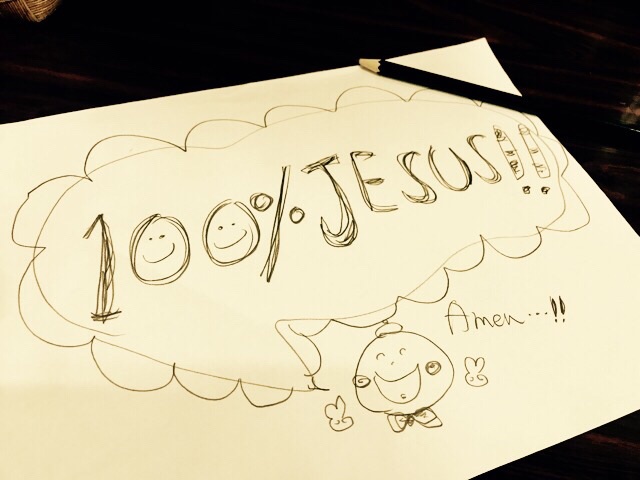 100% JESUS!!
Amen...!!